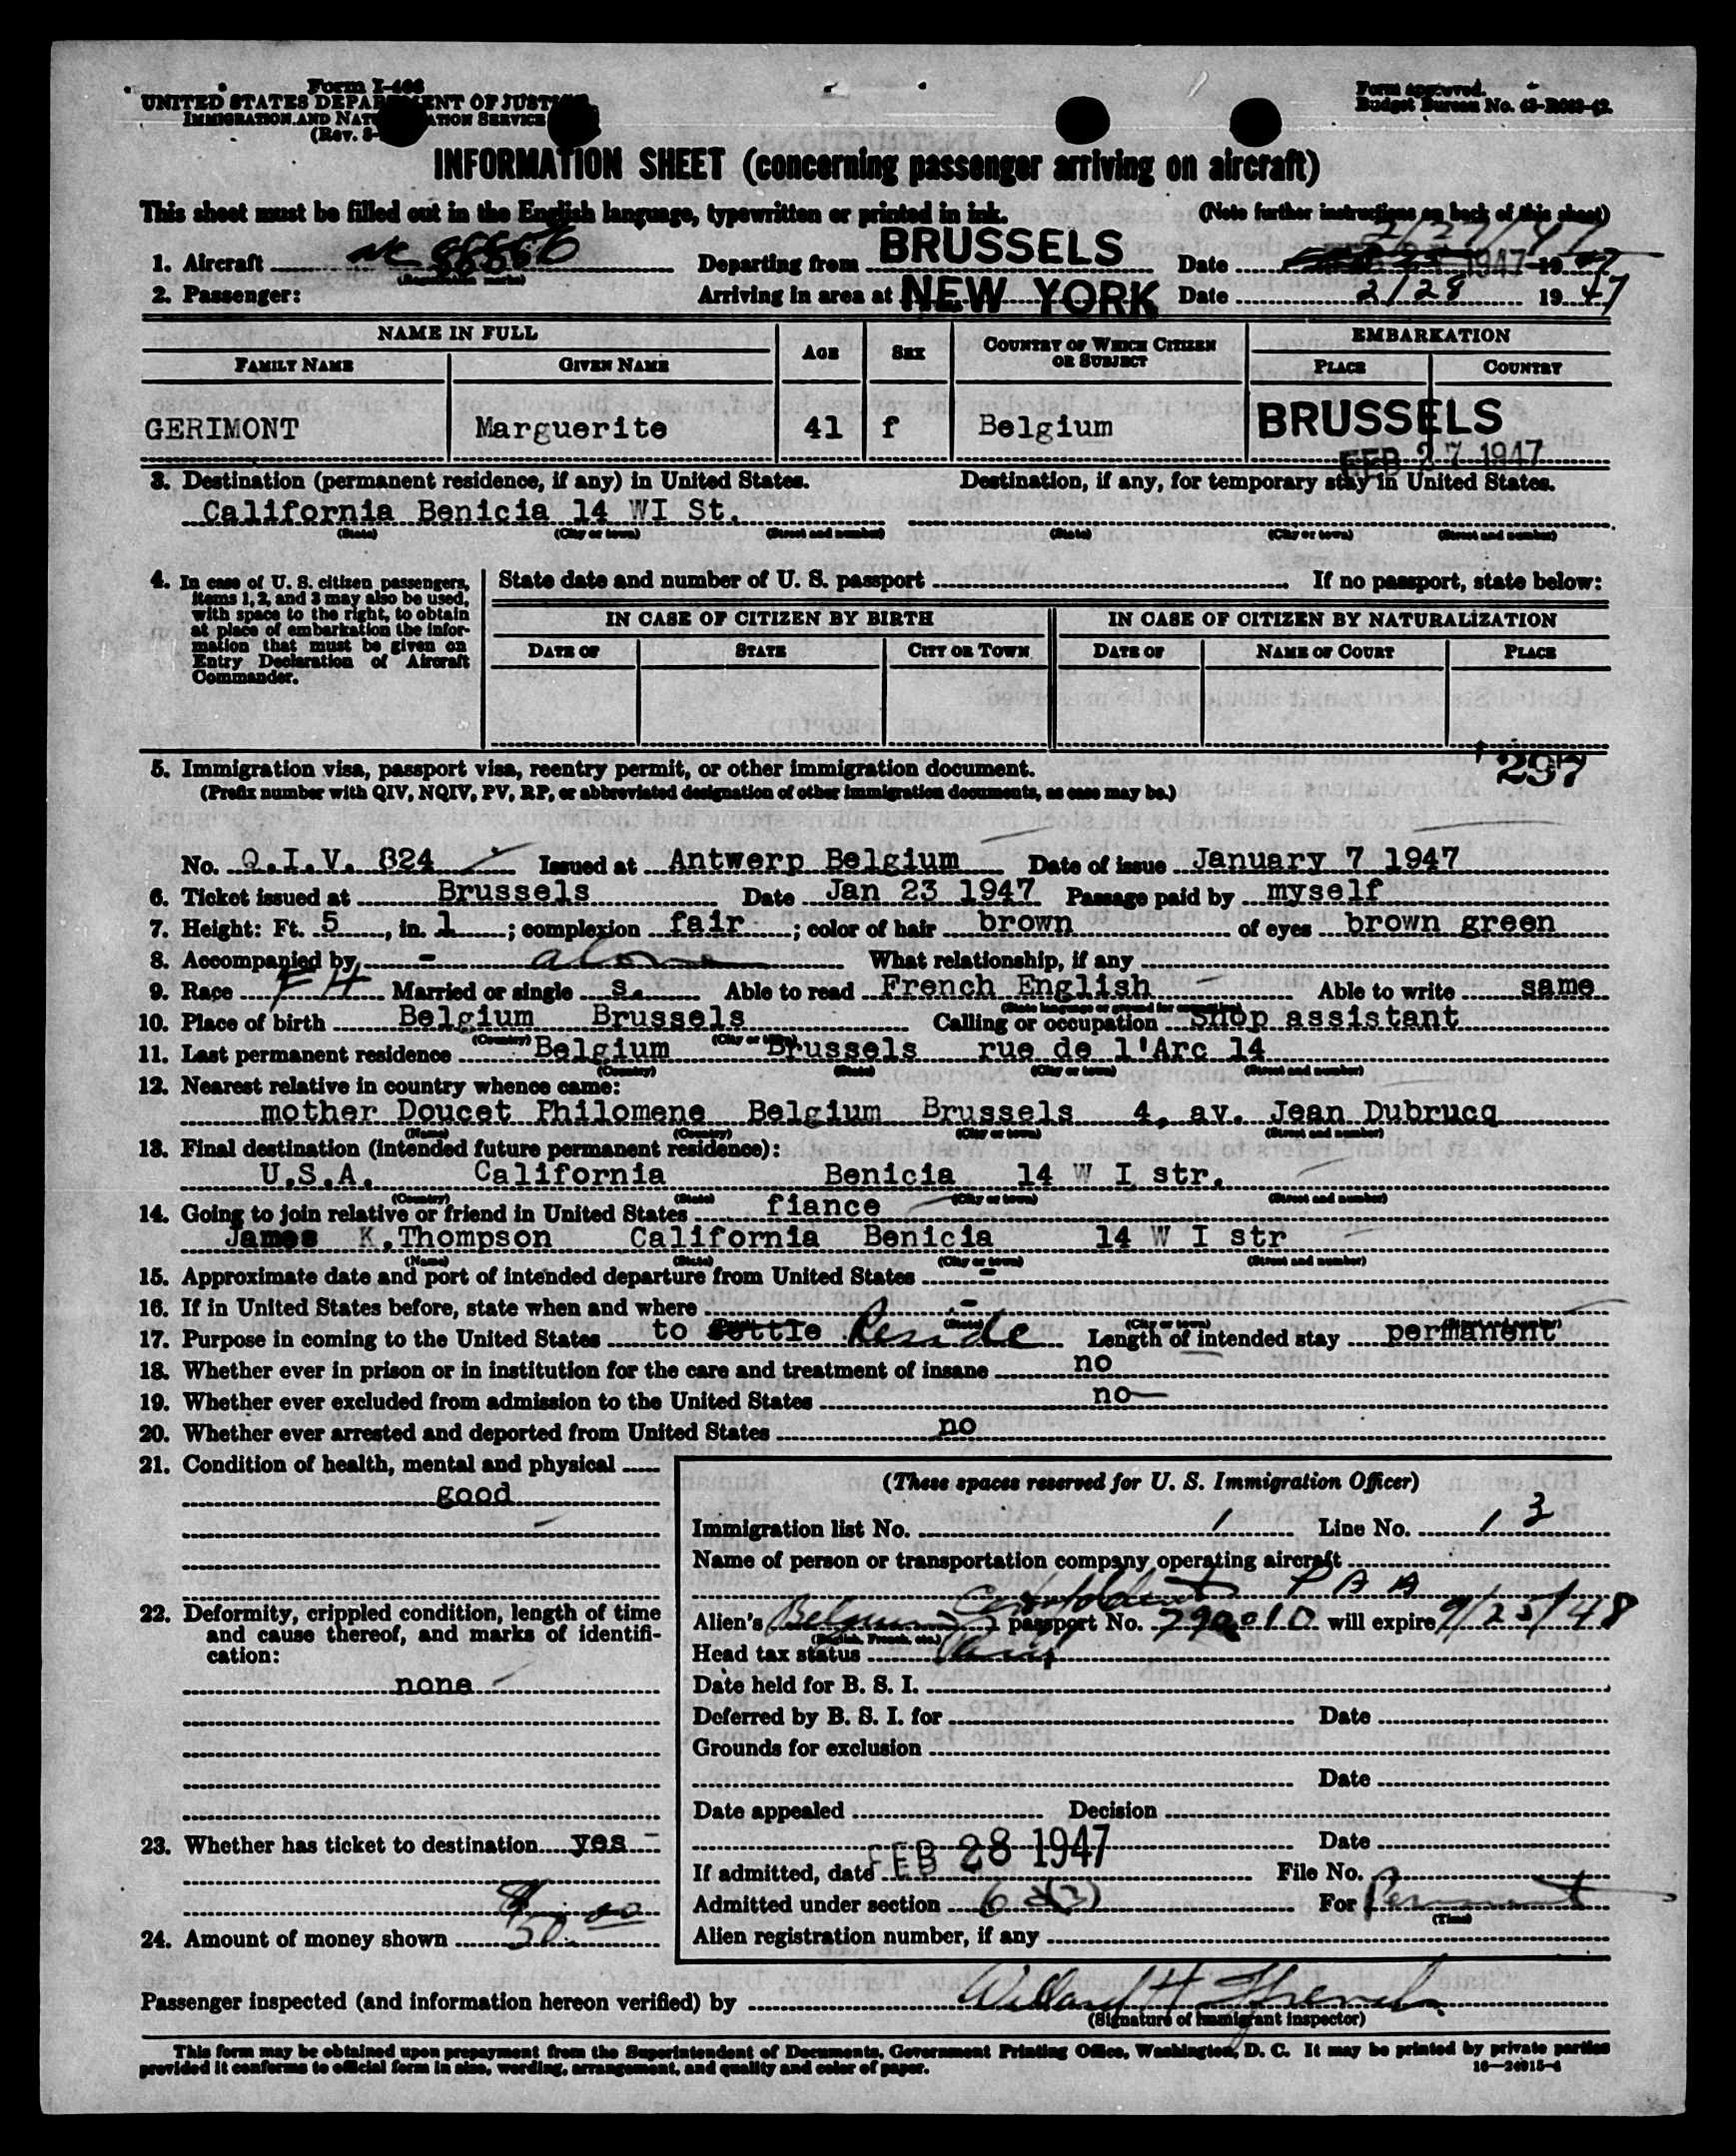 Form I-466
UNITED STATES DEPARTMENT OF JUSTICE
IMMIGRATION AND NATURALIZATION SERVICE
(Rev. 8-
Form approved.
Budget Bureau No. 43-R063-42.
INFORMATION SHEET (concerning passenger arriving on aircraft)
This sheet must be filled out in the English language, typewritten or printed in ink. (Note further instructions on back of this sheet)
2/27/47
1. Aircraft NC 88856 Departing from BRUSSELS Date 1947 1947
(Registration marks)
2. Passenger: Arriving in area at NEW YORK Date 2/28 1947
NAME IN FULL AGE SEX COUNTRY OF WHICH CITIZEN OR SUBJECT EMBARKATION
FAMILY NAME GIVEN NAME PLACE COUNTRY
GERIMONT Marguerite 41 f Belgium BRUSSELS
FEB 27 1947
3. Destination (permanent residence, if any) in United States. Destination, if any, for temporary stay in United States.
California Benicia 14 WI St.
(State) (City or town) (Street and number) (State) (City or town) (Street and number)
4. In case of U. S. citizen passengers, items 1, 2, and 3 may also be used, with space to the right, to obtain at place of embarkation the information that must be given on Entry Declaration of Aircraft Commander.
State date and number of U. S. passport If no passport, state below:
IN CASE OF CITIZEN BY BIRTH IN CASE OF CITIZEN BY NATURALIZATION
DATE OF STATE CITY OR TOWN DATE OF NAME OF COURT PLACE
297
5. Immigration visa, passport visa, reentry permit, or other immigration document.
(Prefix number with QIV, NQIV, PV, RP, or abbreviated designation of other immigration documents, as case may be.)
No. Q.I.V. 824 Issued at Antwerp Belgium Date of issue January 7 1947
6. Ticket issued at Brussels Date Jan 23 1947 Passage paid by myself
7. Height: Ft. 5, in. 1; complexion fair; color of hair brown of eyes brown green
8. Accompanied by - alone What relationship, if any
9. Race FH Married or single s. Able to read French English Able to write same
(State language or ground for exemption)
10. Place of birth Belgium Brussels Calling or occupation Shop assistant
(Country) (City or town)
11. Last permanent residence Belgium Brussels rue de l'Arc 14
(Country) (State) (City or town) (Street and number)
12. Nearest relative in country whence came:
mother Doucet Philomene Belgium Brussels 4, av. Jean Dubrucq
(Name) (Country) (City or town) (Street and number)
13. Final destination (intended future permanent residence):
U.S.A. California Benicia 14 W I str.
(Country) (State) (City or town) (Street and number)
14. Going to join relative or friend in United States fiance
James K.Thompson California Benicia 14 W I str
(Name) (State) (City or town) (Street and number)
15. Approximate date and port of intended departure from United States -
16. If in United States before, state when and where -
(State) (City or town) (Street and number)
17. Purpose in coming to the United States to settle Reside Length of intended stay permanent
18. Whether ever in prison or in institution for the care and treatment of insane no
19. Whether ever excluded from admission to the United States no
20. Whether ever arrested and deported from United States no
21. Condition of health, mental and physical
good
22. Deformity, crippled condition, length of time and cause thereof, and marks of identification:
none
23. Whether has ticket to destination yes
24. Amount of money shown $50.00
(These spaces reserved for U. S. Immigration Officer)
Immigration list No. 1 Line No. 13
Name of person or transportation company operating aircraft
P A A
Alien's Belgium passport No. will expire 9/25/48
(English, French, etc.)
Head tax status
Date held for B. S. I.
Deferred by B. S. I. for Date
Grounds for exclusion
Date
Date appealed Decision
Date
If admitted, date FEB 28 1947 File No.
Admitted under section 6 For Permanent
(Time)
Alien registration number, if any
Passenger inspected (and information hereon verified) by Willard H
(Signature of immigrant inspector)
This form may be obtained upon prepayment from the Superintendent of Documents, Government Printing Office, Washington, D. C. It may be printed by private parties
provided it conforms to official form in size, wording, arrangement, and quality and color of paper. 16-24915-4